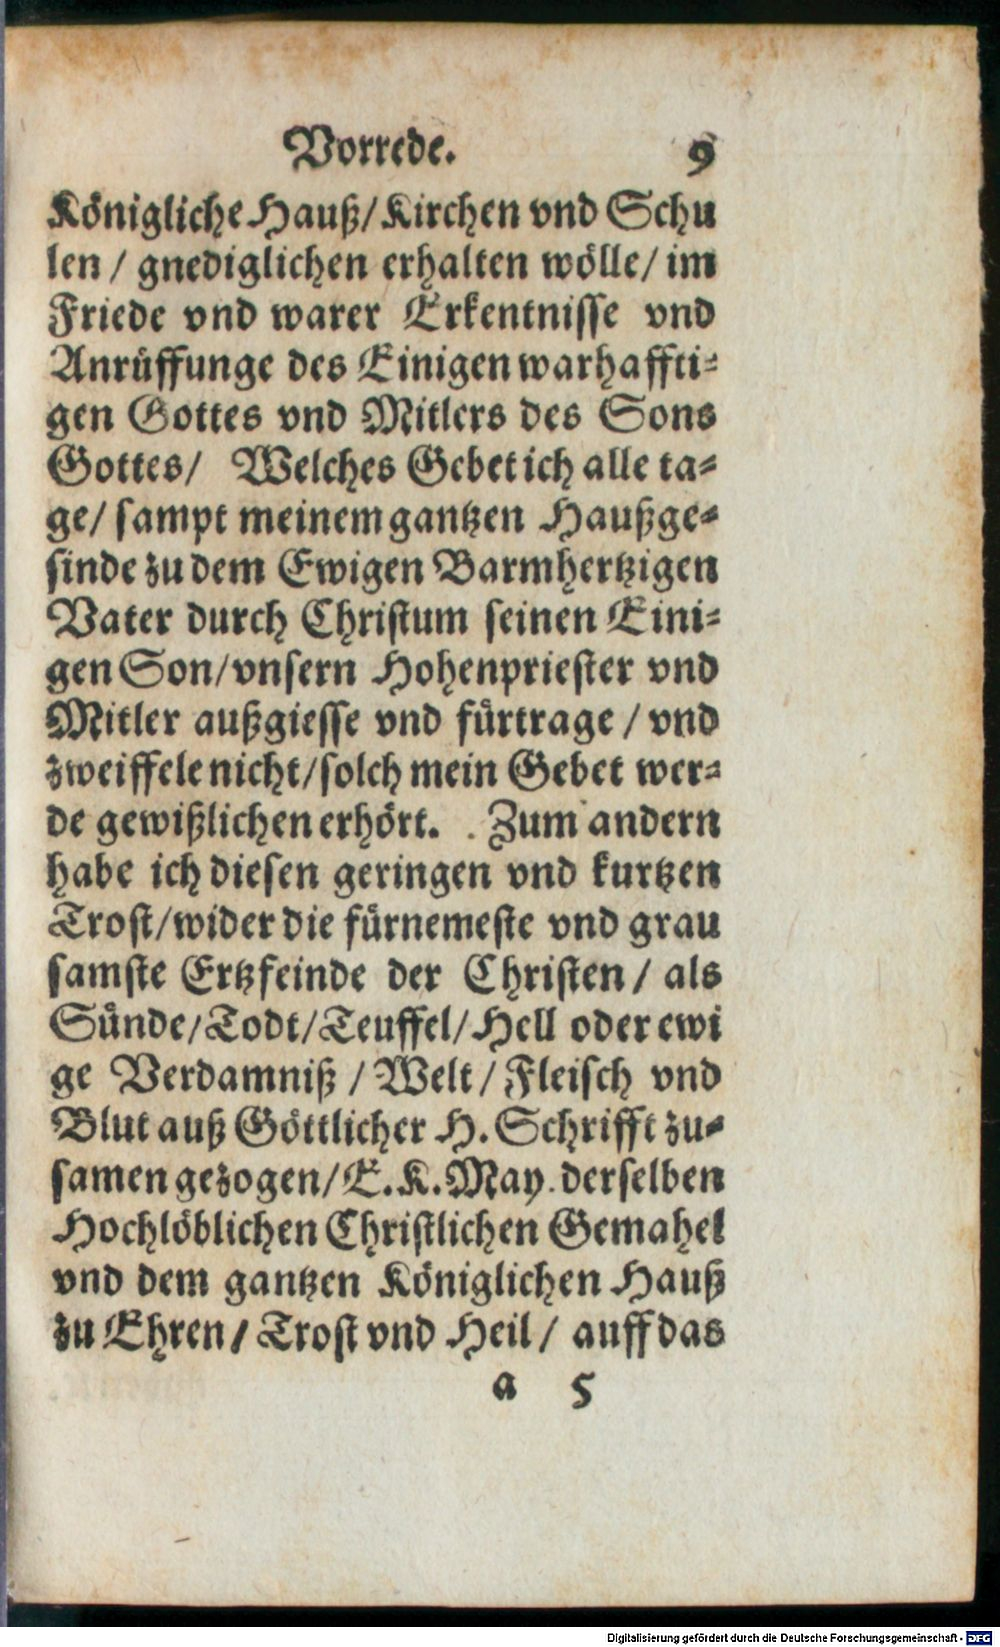 Vorrede. 9
Königliche Hauß/ Kirchen vnd Schu
len/ gnediglichen erhalten wölle/ im
Friede vnd warer Erkentnisse vnd
Anrüffunge des Einigen warhaffti-
gen Gottes vnd Mitlers des Sons
Gottes/ Welches Gebet ich alle ta-
ge/ sampt meinem gantzen Haußge-
sinde zu dem Ewigen Barmhertzigen
Vater durch Christum seinen Eini-
gen Son/ vnsern Hohenpriester vnd
Mitler außgiesse vnd fürtrage/ vnd
zweiffele nicht/ solch mein Gebet wer-
de gewißlichen erhört. Zum andern
habe ich diesen geringen vnd kurtzen
Trost/ wider die fürnemeste vnd grau
samste Ertzfeinde der Christen/ als
Sünde/ Todt/ Teuffel/ Hell oder ewi
ge Verdamniß/ Welt/ Fleisch vnd
Blut auß Göttlicher H. Schrifft zu-
samen gezogen/ E. K. May. derselben
Hochlöblichen Christlichen Gemahel
vnd dem gantzen Königlichen Hauß
zu Ehren/ Trost vnd Heil/ auff das
a 5
Digitalisierung gefördert durch die Deutsche Forschungsgemeinschaft - DFG